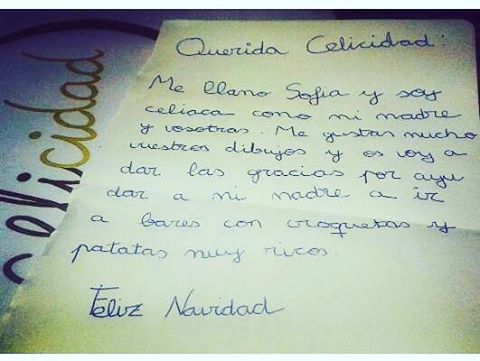 Celicidad
Querida Celicidad:
Me llamo Sofía y soy
celiaca como mi madre
y vosotras. Me gustan mucho
vuestros dibujos y os voy a
dar las gracias por ayu
dar a mi madre a ir
a bares con croquetas y
patatas muy ricos.
Feliz Navidad